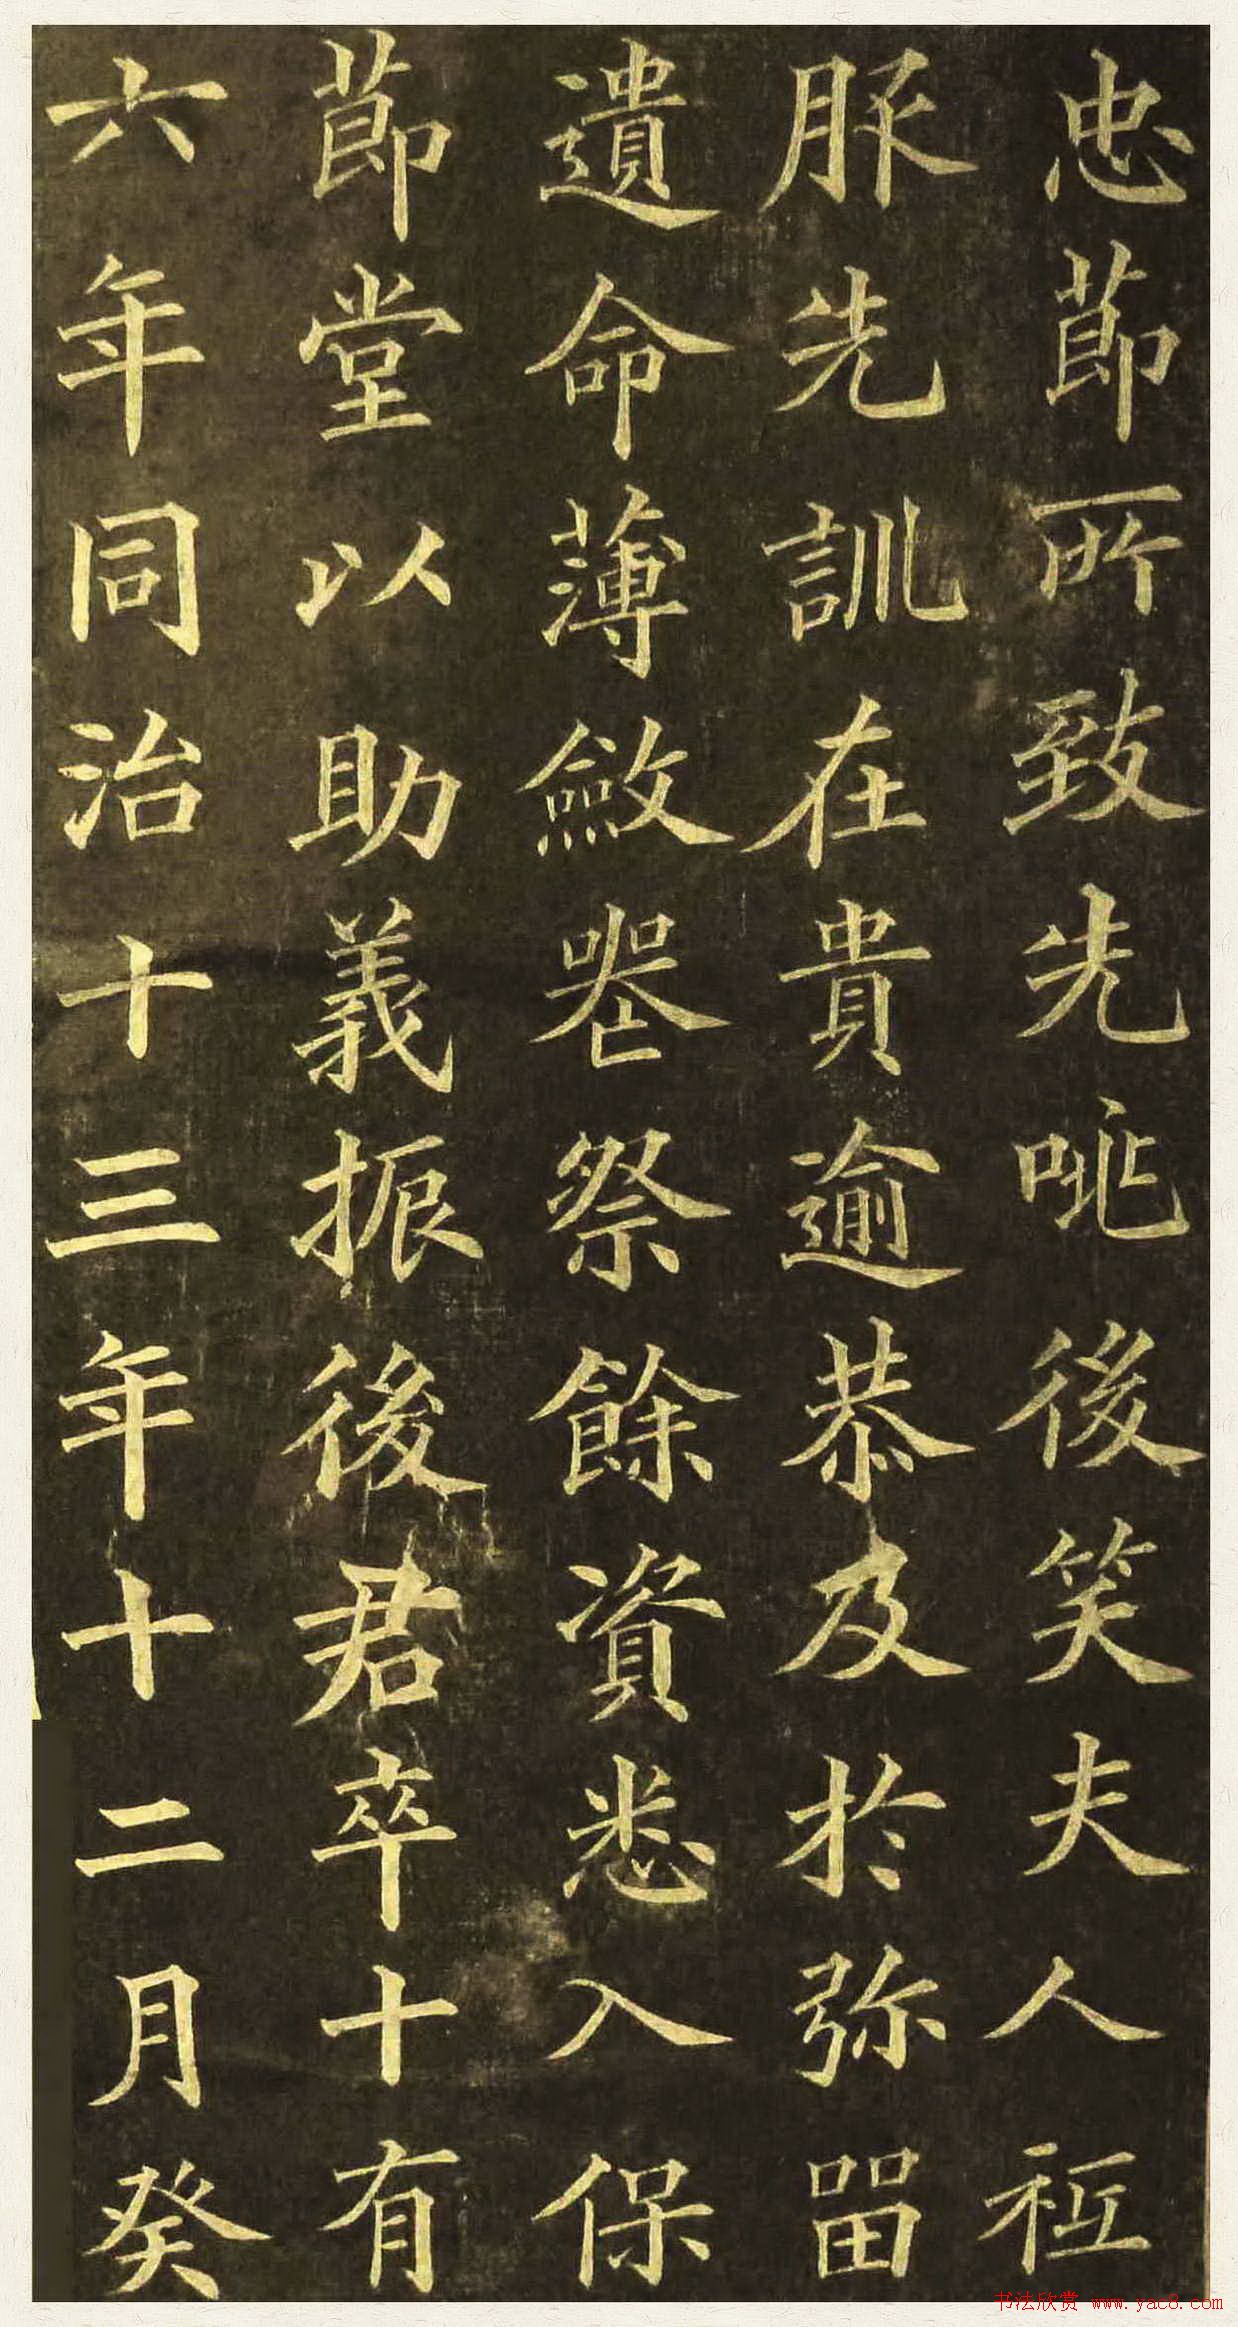 忠節所致先咷後笑夫人祗
服先訓在貴逾恭及於弥留
遺命薄斂喪祭餘資悉入保
節堂以助義振後君卒十有
六年同治十三年十二月癸
书法欣赏 www.yac8.com